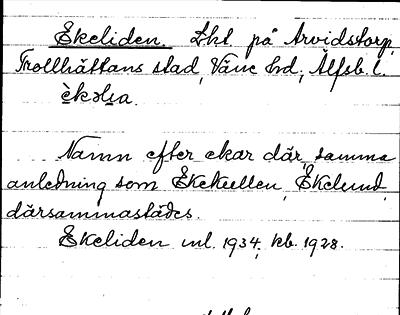 Ekeliden. Lht på Arvidstorp,
Trollhättans stad, Väne hd, Älfsb. l.
Namn efter ekar där, samma
anledning som Ekekullen, Ekelund
därsammastädes.
Ekeliden ml. 1934, kb. 1928.